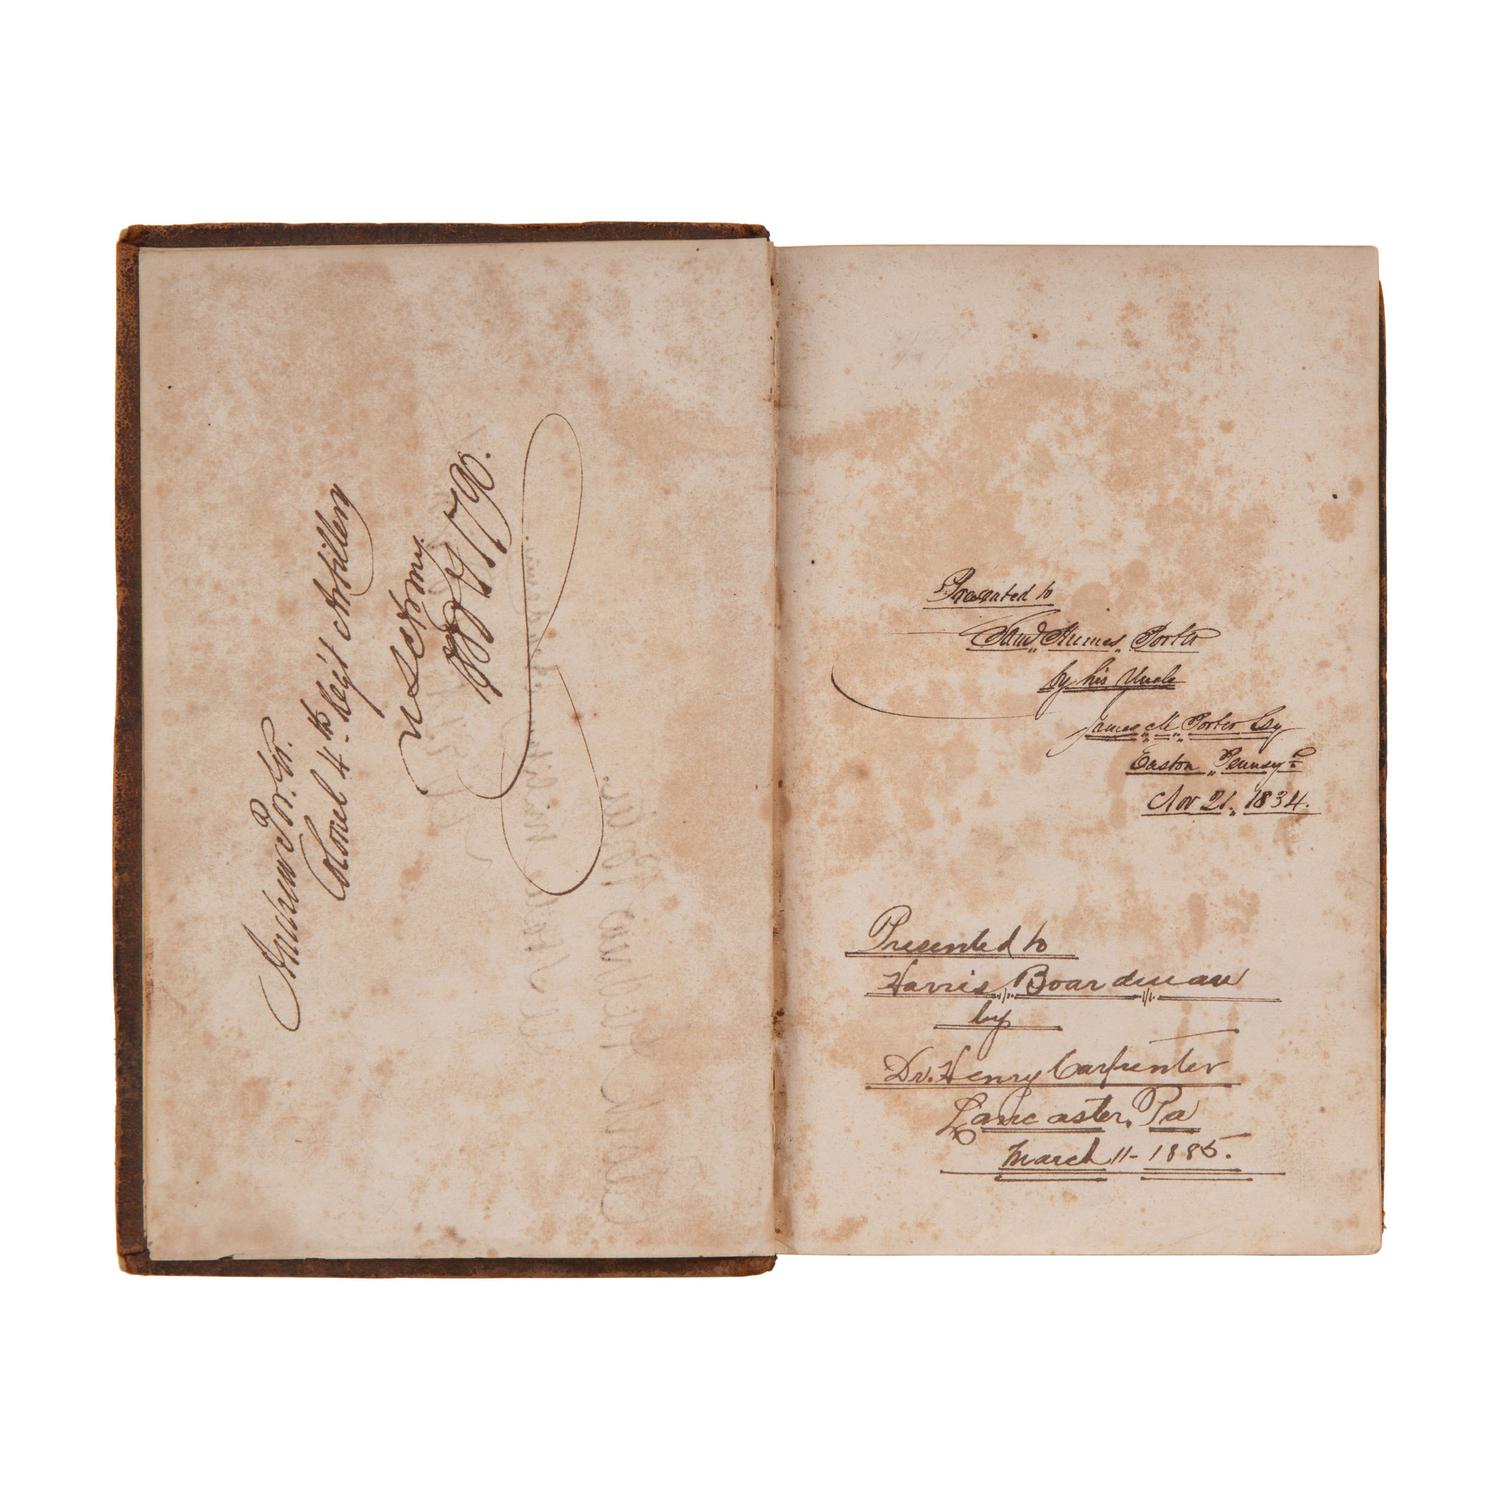 Andrew Porter
Colonel 4th Reg't Artillery
U S Army
1790.
Presented to
Saml Humes Porter
by his Uncle
James M. Porter Esq
Easton Pennsya
Nov 21, 1834.
Presented to
Harris Boardman
by
Dr. Henry Carpenter
Lancaster, Pa
March 11 - 1885.